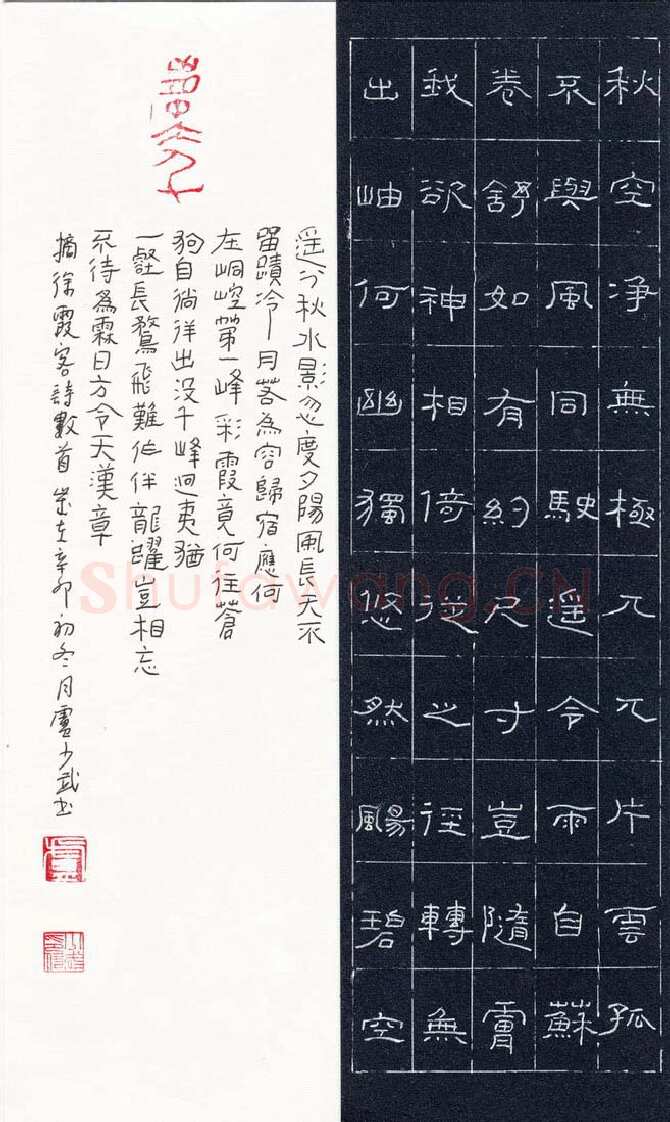 秋空净無極兀兀片雲孤
不與風同駛遥令雨自蘇
卷舒如有約尺寸豈隨膚
我欲神相倚從之徑轉無
出岫何幽獨悠然颺碧空
遥分秋水影忽度夕陽風長天不
留蹟冷月若為容歸宿應何
在峒崆第一峰彩霞竟何往蒼
狗自徜徉出没千峰迥夷猶
一壑長鶩飛難作伴龍躍豈相忘
不待為霖日方令天漢章
摘徐霞客詩數首歲在辛卯初冬月盧少武書
Shufawang.CN